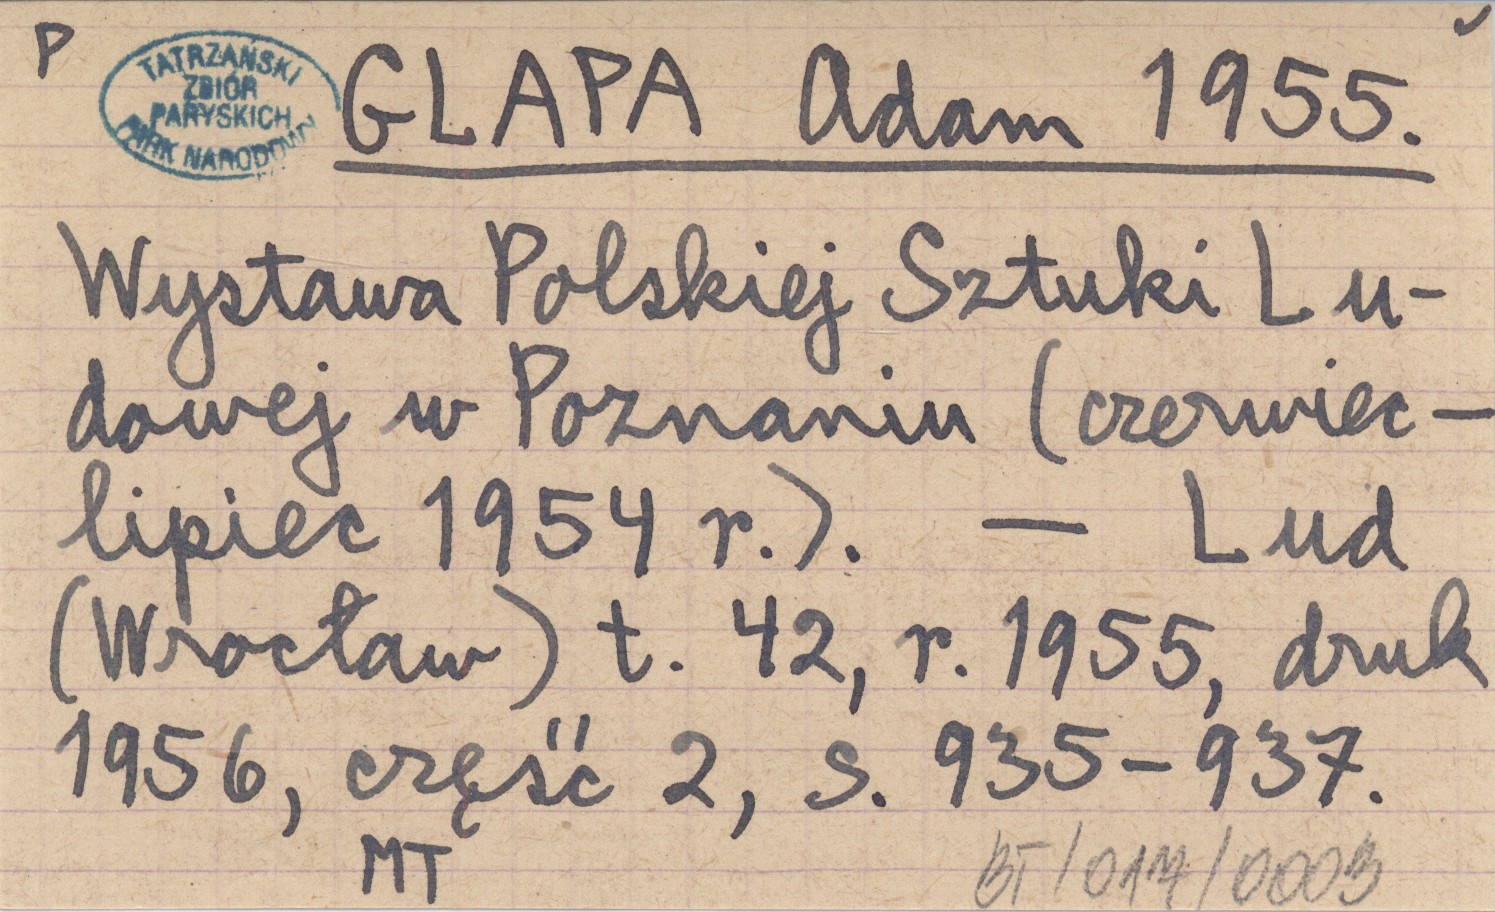 P
TATRZAŃSKI
ZBIÓR
PARYSKICH
PARK NARODOWY
GLAPA Adam 1955.
Wystawa Polskiej Sztuki Lu-
dowej w Poznaniu (czerwiec –
lipiec 1954 r.). — Lud
(Wrocław) t. 42, r. 1955, druk
1956, część 2, s. 935–937.
MT
BT/017/0003